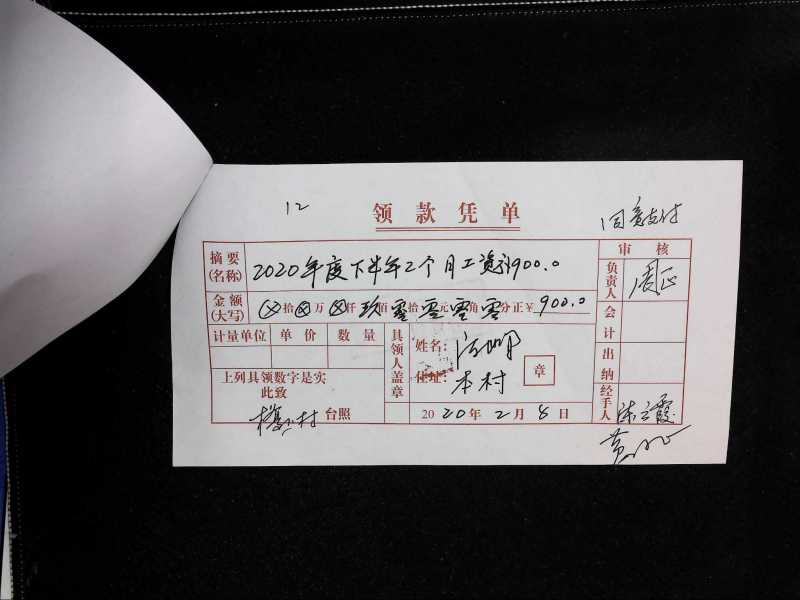 12
领款凭单
同意支付
摘要(名称) 2020年度下半年2个月工资计900.0
审核
金额(大写) ⊗拾⊗万⊗仟玖佰零拾零元零角零分正￥900.0
负责人 周正
计量单位 单价 数量
具领人盖章 姓名: 明
会计
住址: 本村
章
出纳
上列具领数字是实
此致
村 台照
2020年2月8日
经手人 陈云霞
黄